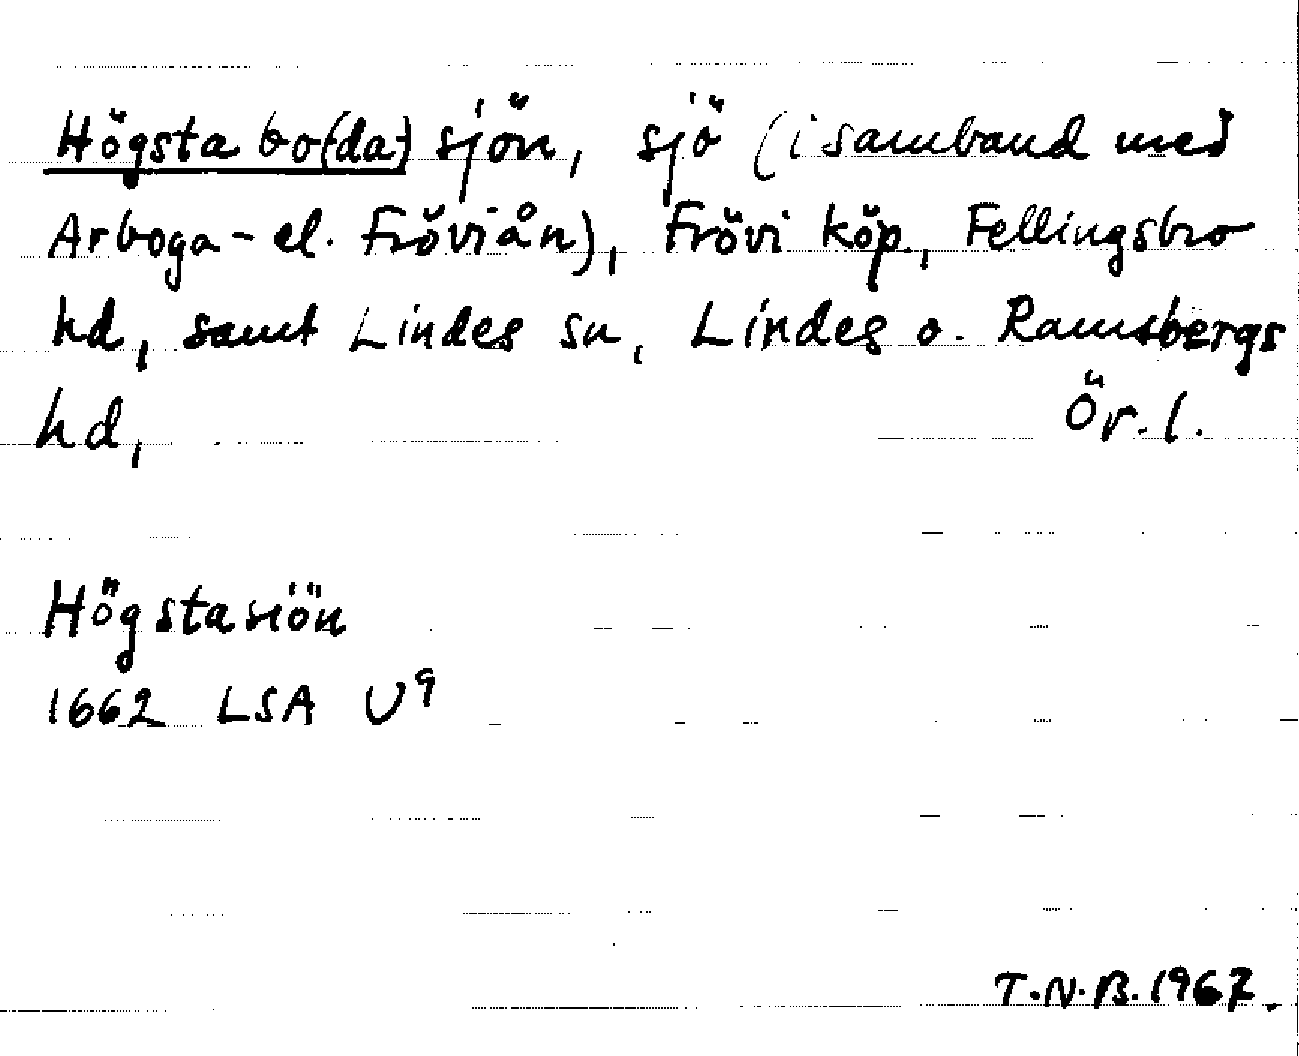 Högsta bo(da-) sjön, sjö (i samband med
Arboga- el. Fröviån), Frövi köp., Fellingsbro
hd, samt Lindes sn, Lindes o. Ramsbergs
hd, Ör. l.
Högstasiön
1662 LSA U⁹
T.N.B. 1967.